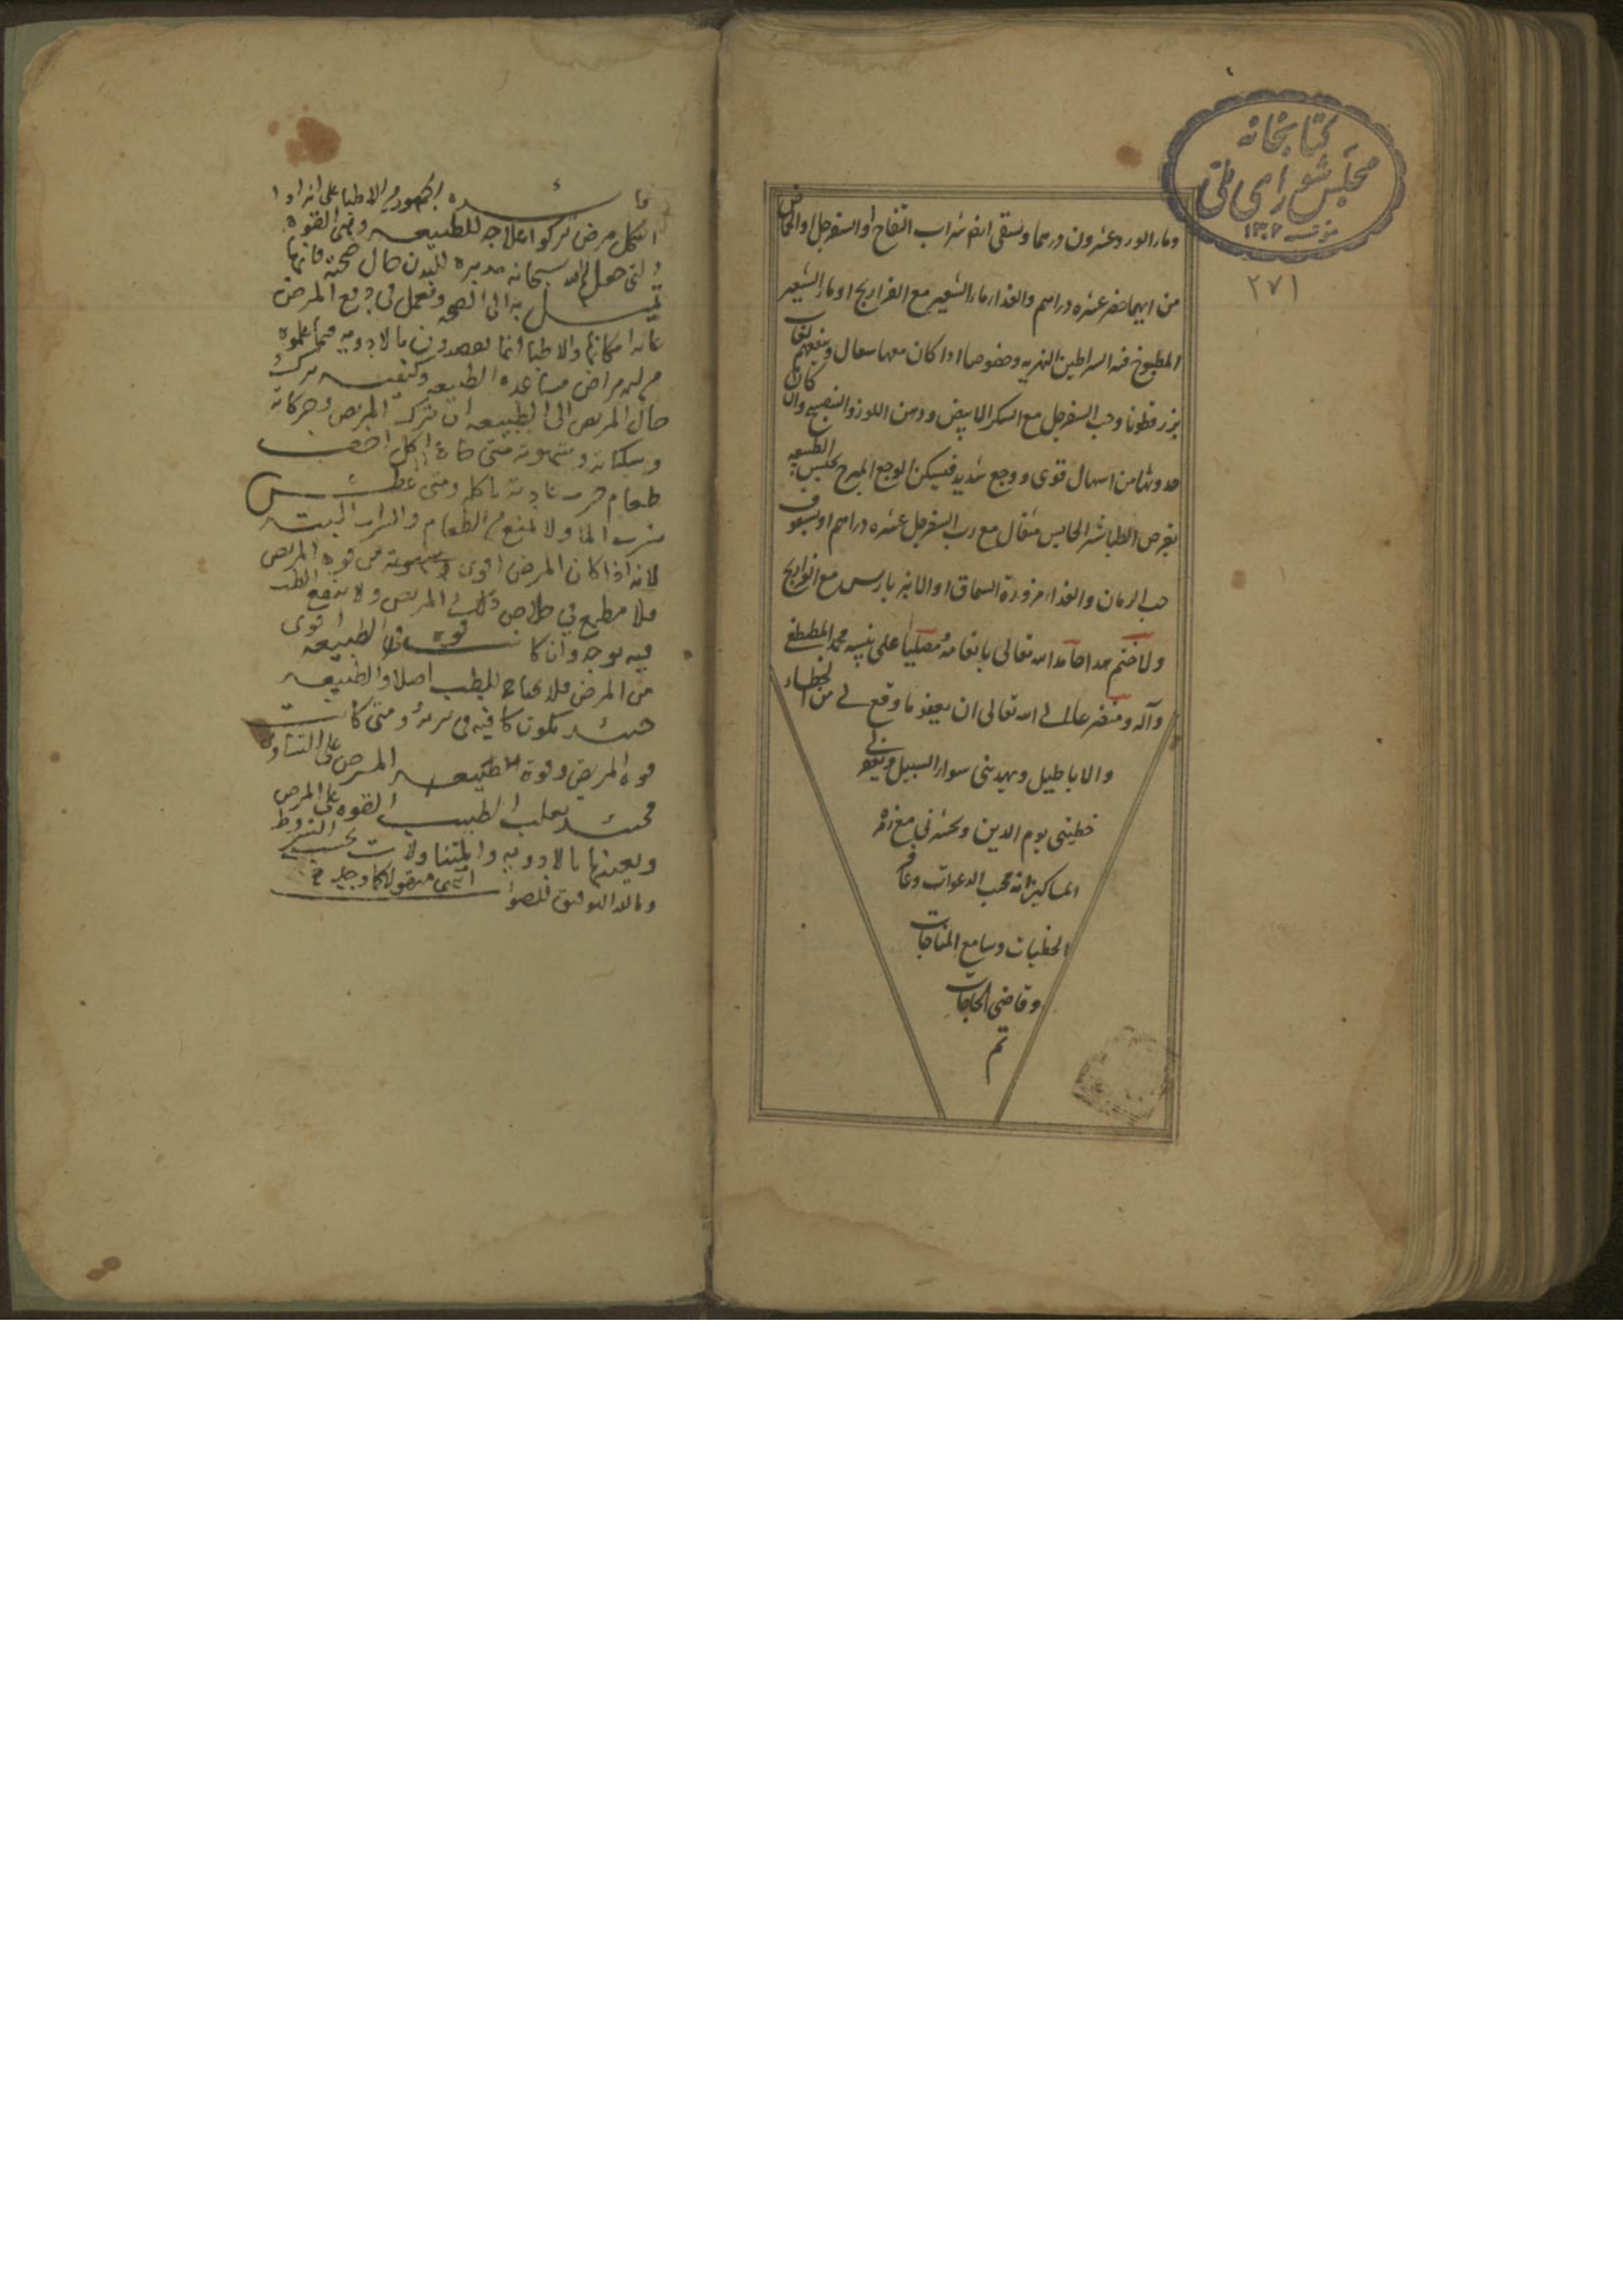 كتابخانه
مجلس شورای ملی
٢٧١
وماء الورد عشرون درهما ويسقى ايضا شراب التفاح او السفرجل او الحماض
من ايهما حضر عشرة دراهم والغذاء ماء الشعير مع الفراريج او ماء الشعير
المطبوخ فيه السراطين النهرية وخصوصا اذا كان معها سعال وينفعهم لعاب
بزر قطونا وحب السفرجل مع السكر الابيض ودهن اللوز والبنفسج وان كان
حدوثها من اسهال قوى ووجع شديد فيسكن الوجع المبرح بحبس الطبيعه
بقرص الطباشير الحابس مثقال مع رب السفرجل عشره دراهم او بسفوف
حب الرمان والغذاء مزورة السماق او الانبرباريس مع الفراريج
ولنختم هذا حامدا لله تعالى بانعامه مصليا على نبيه محمد المصطفى
وآله ومتضرعا الى الله تعالى ان يعفو ما وقع لى من الخطاء
والاباطيل ويهدينى سواء السبيل ويغفر لى
خطيئتى يوم الدين ويحشرنى مع زمرة
المساكين انه مجيب الدعوات وغافر
الخطيات وسامع المناجات
وقاضى الحاجات
تم
فائده الجمهور من الاطبا على انه اذا
اشكل مرض تركوا علاجه للطبيعه وهى القوه
التى جعل الله سبحانه مدبره للبدن حال صحته فانها
تميل به الى الصحه وتعمل فى دفع المرض
غاية امكانها والاطبا انما يقصدون بالادويه فيما علموه
من الامراض مساعدة الطبيعه وكيفيه ترك
حال المريض الى الطبيعه ان يترك المريض وحركاته
وسكناته وشهوته متى جاع اكل اخف
طعام جرت عادته باكله ومتى عطش
شرب الما ولا يمنع من الطعام والشراب البته
لانه اذا كان المرض اقوى من قوه المريض
فلا مطمع فى خلاص ذلك المريض ولا ينفع الطب
فيه بوجه وان كانت قوه الطبيعه اقوى
من المرض فلا يحتاج للطب اصلا والطبيعه
حينئذ تكون كافيه فى برئه ومتى كانت
قوه المريض وقوة المرض على التساوى
فحينئذ يغلب الطبيب القوه على المرض
ويعينها بالادويه والمتناولات بحسب الشروط
وبالله التوفيق للصواب انتهى منقولا كما وجد